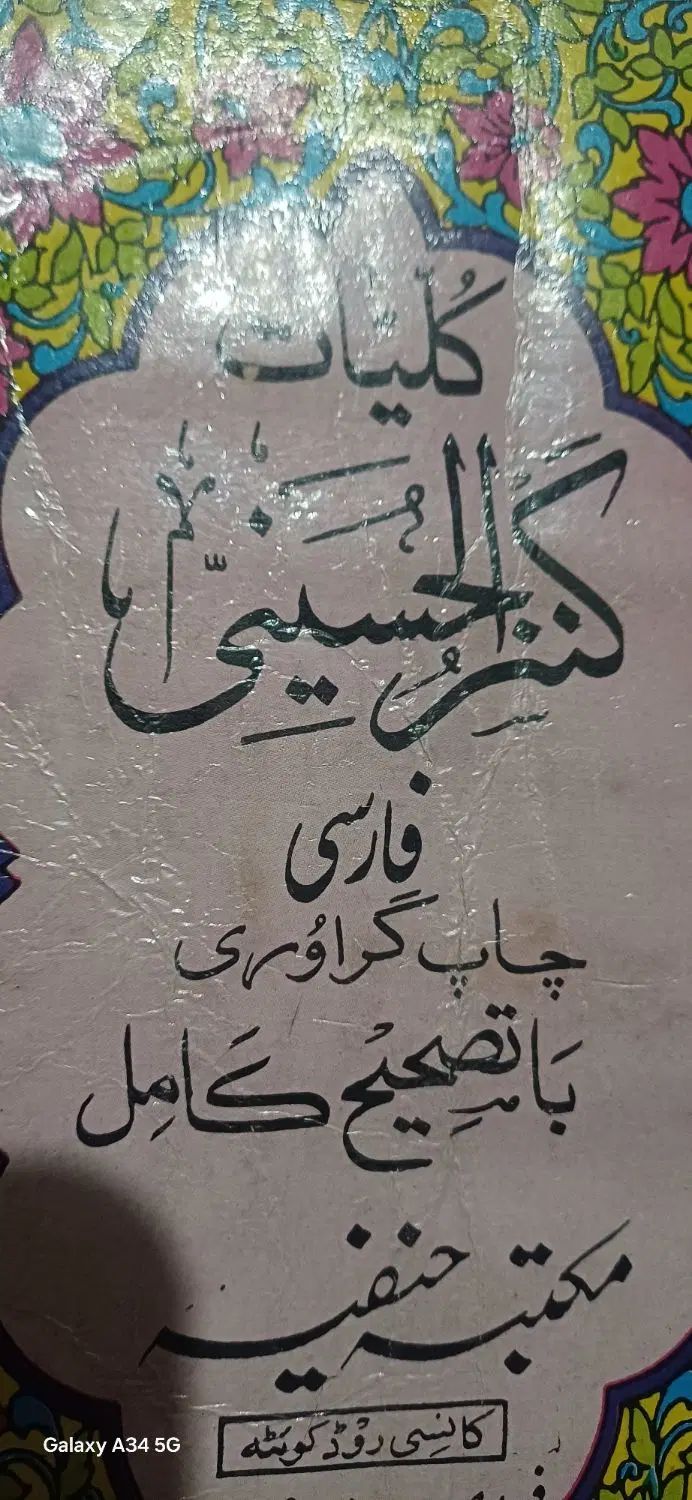 کُلیات
کَنزُ الحُسینیّ
فارسی
چاپ گراوُری
بَا تصحیْح کَامِل
مکتبہ حنفیہ
کانسِی روْڈ کوئٹہ
Galaxy A34 5G